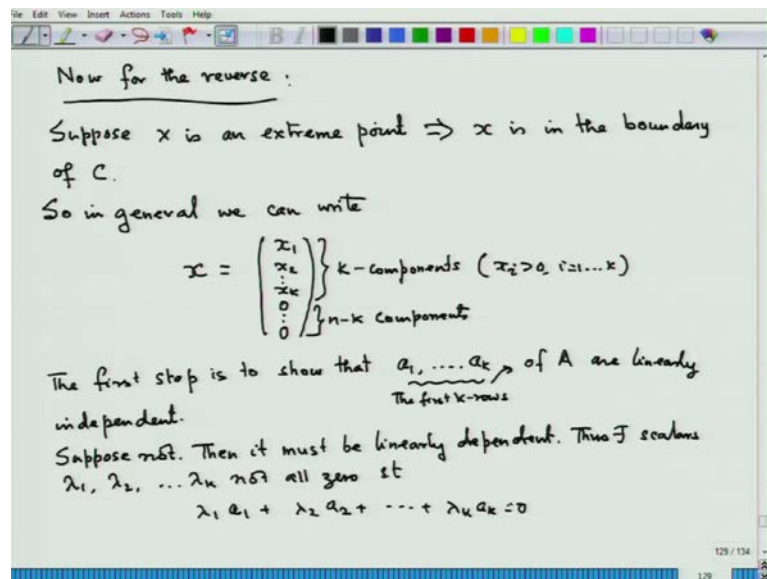 File Edit View Insert Actions Tools Help
Now for the reverse :
Suppose x is an extreme point ⇒ x is in the boundary
of C.
So in general we can write
x = (x₁ x₂ ⋮ xₖ 0 ⋮ 0) } k-components (xᵢ>0, i=1...k) } n-k components
The first step is to show that a₁, .... aₖ of A are linearly
The first k-rows
independent.
Suppose not. Then it must be linearly dependent. Thus ∃ scalars
λ₁, λ₂, ... λₖ not all zero st
λ₁ a₁ + λ₂ a₂ + ... + λₖ aₖ = 0
129 / 134
129